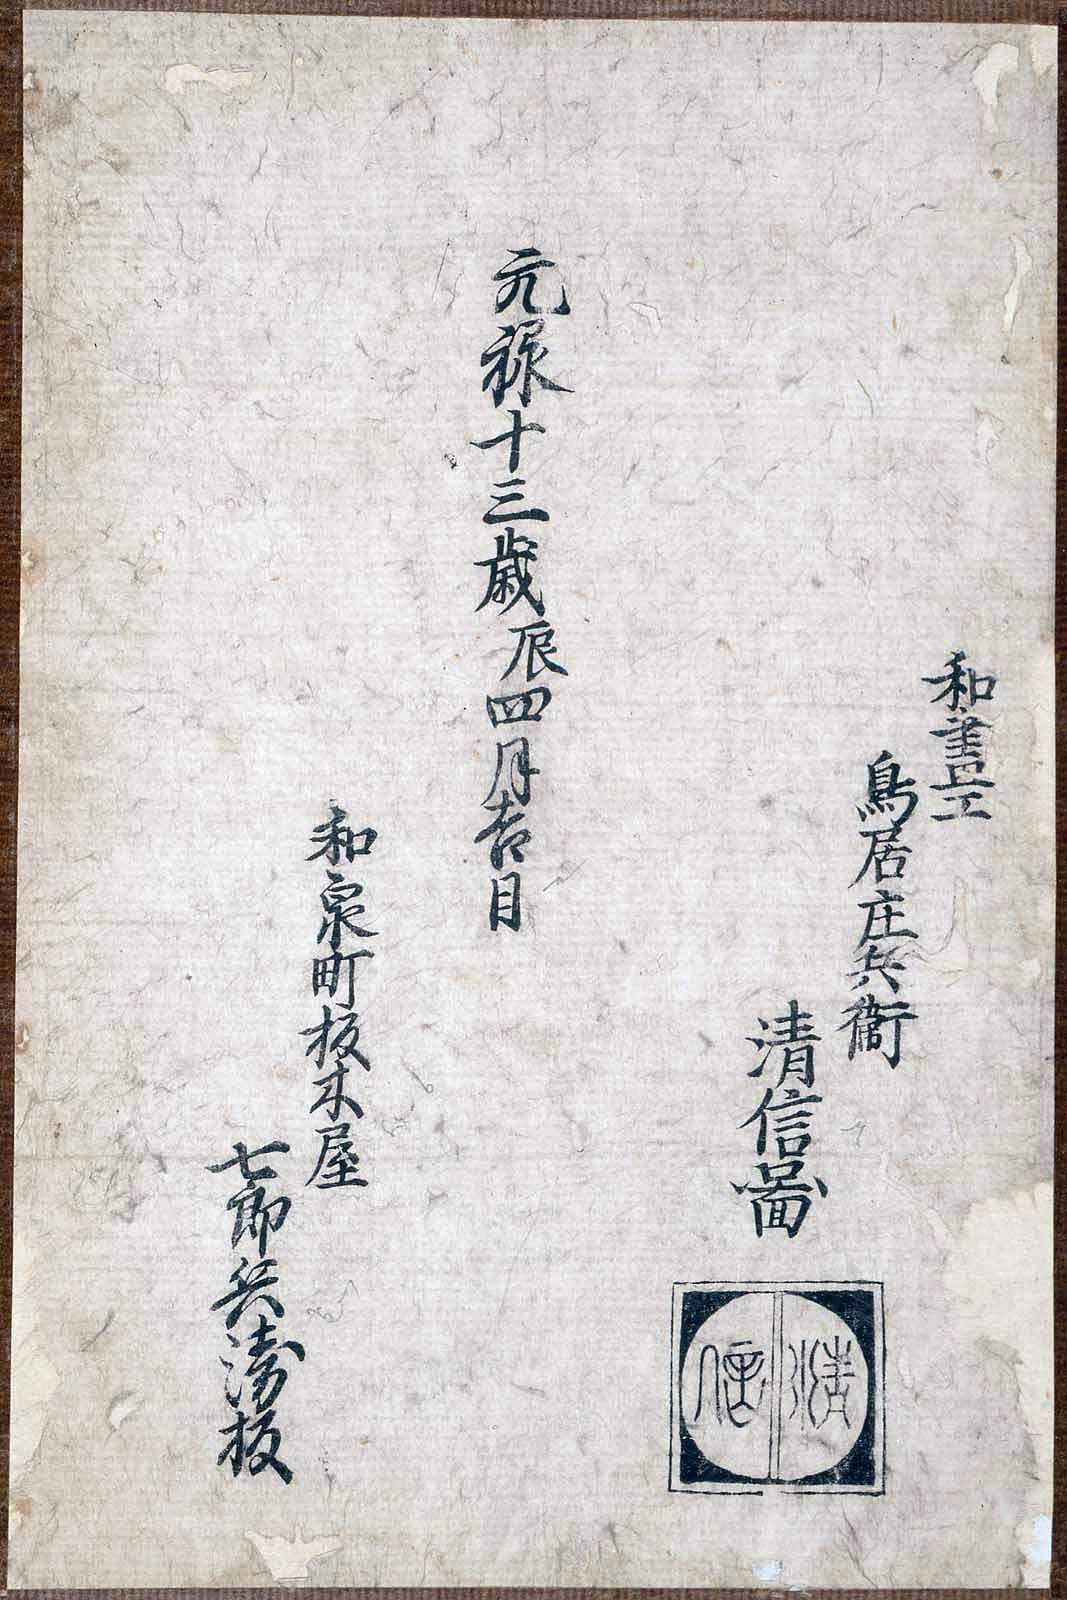 和畫工
鳥居庄兵衞
清信啚
清信
元禄十三歳辰四月吉日
和泉町板木屋
七郎兵衛板